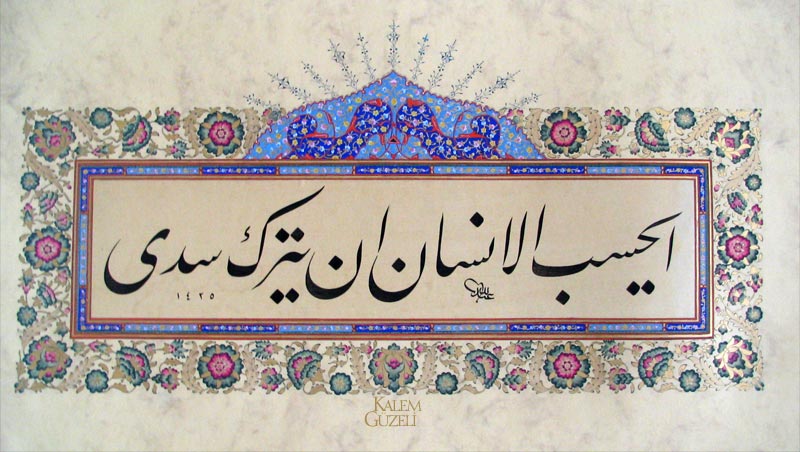 ايحسب الانسان ان يترك سدى
١٤٢٥
KALEM
GÜZELİ